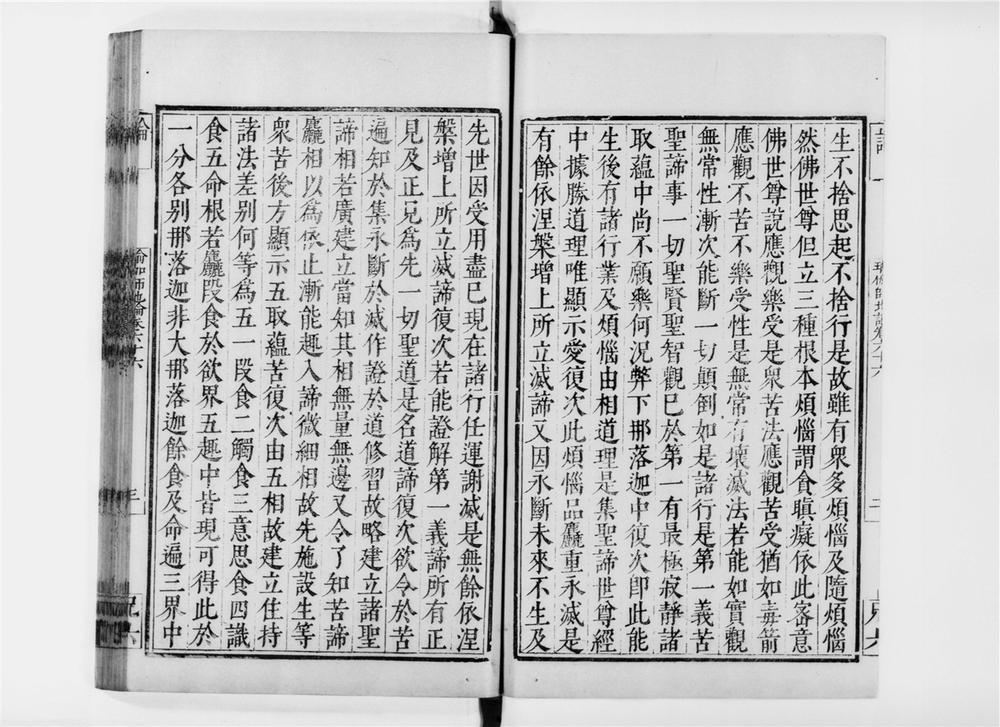 生不捨思起不捨行是故雖有衆多煩惱及隨煩惱
然佛世尊但立三種根本煩惱謂貪瞋癡依此密意
佛世尊說應觀樂受是衆苦法應觀苦受猶如毒箭
應觀不苦不樂受性是無常有壞滅法若能如實觀
無常性漸次能斷一切顛倒如是諸行是第一義苦
聖諦事一切聖賢聖智觀已於第一有最極寂靜諸
取蘊中尚不願樂何況弊下那落迦中復次卽此能
生後有諸行業及煩惱由相道理是集聖諦世尊經
中據勝道理唯顯示愛復次此煩惱品麤重永滅是
有餘依涅槃增上所立滅諦又因永斷未來不生及
先世因受用盡已現在諸行任運謝滅是無餘依涅
槃增上所立滅諦復次若能證解第一義諦所有正
見及正見爲先一切聖道是名道諦復次欲令於苦
遍知於集永斷於滅作證於道修習故略建立諸聖
諦相若廣建立當知其相無量無邊又令了知苦諦
麤相以爲依止漸能趣入諦微細相故先施設生等
衆苦後方顯示五取蘊苦復次由五相故建立住持
諸法差別何等爲五一段食二觸食三意思食四識
食五命根若麤段食於欲界五趣中皆現可得此於
一分各別那落迦非大那落迦餘食及命遍三界中
論
瑜伽師地論卷六十六
三